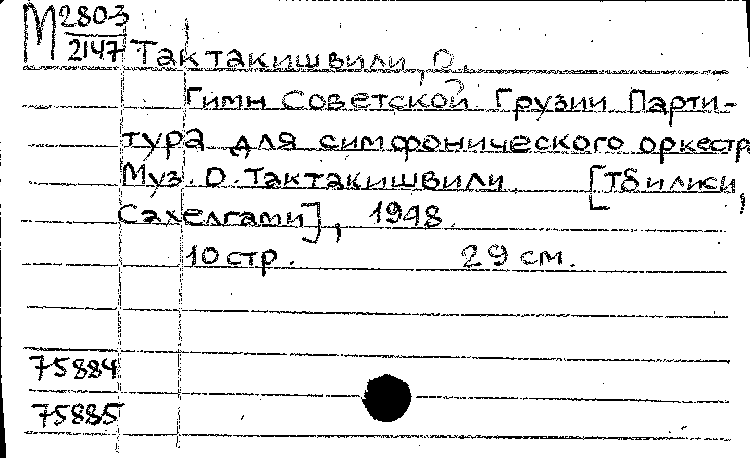 М 2803
2147
Тактакишвили, О.
Гимн Советской Грузии Парти-
тура для симфонического оркестр.
Муз. О. Тактакишвили. [Тбилиси,
Сахелгами], 1948.
10 стр. 29 см.
75884
75885